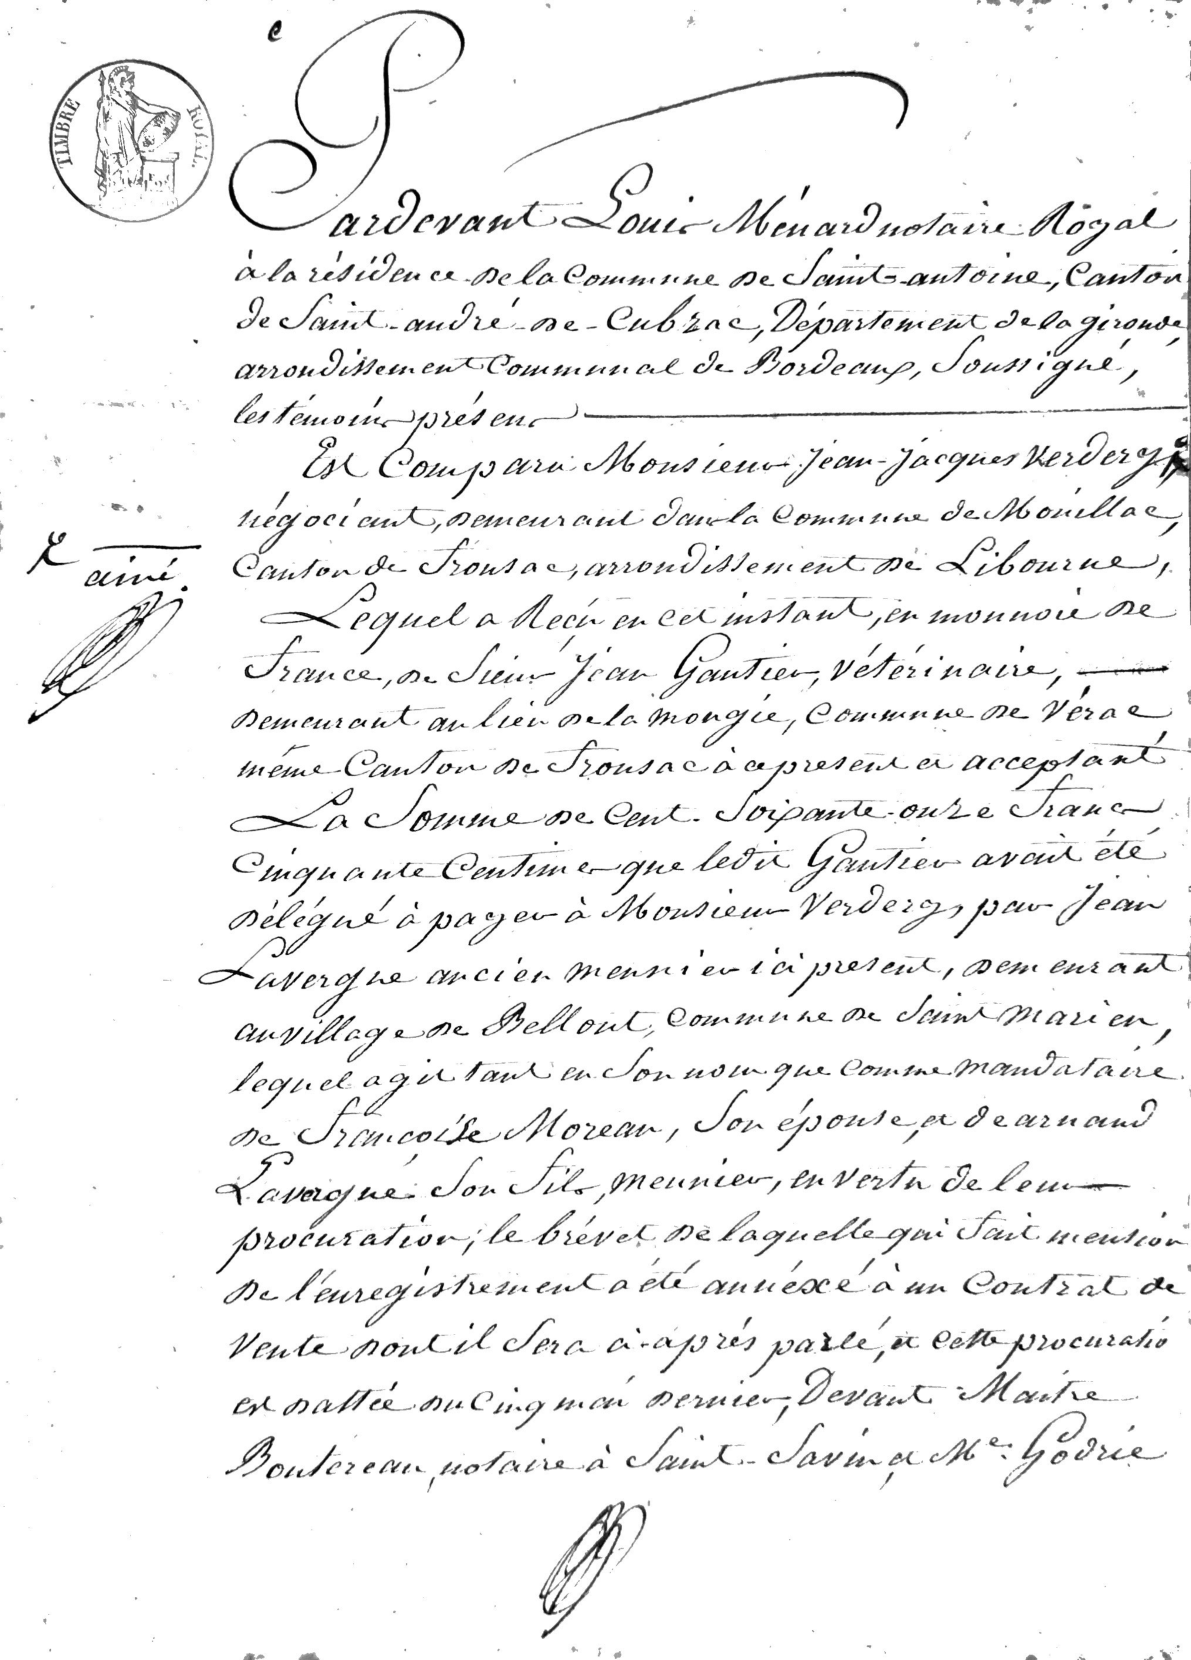 TIMBRE ROYAL
Pardevant Louis Ménard notaire Royal
à la résidence de la Commune de Saint-antoine, Canton
de Saint-andré-de-Cubzac, Département de la gironde,
arrondissement Communal de Bordeaux, Soussigné,
les témoins présens
Est Comparu Monsieur Jean-Jacques Verdery
négociant, demeurant dans la Commune de Mouillac,
Canton de fronsac, arrondissement de Libourne,
ainé.
Lequel a Reçu en cet instant, en monnoie de
france, de Sieur Jean Gautier, vétérinaire,
demeurant au lieu de la mongie, Commune de Vérac
même Canton de fronsac à ce présent et acceptant
La Somme de Cent-Soixante-onze francs
Cinquante Centimes que ledit Gautier avait été
délégué à payer à Monsieur Verdery, par Jean
Lavergne ancien meunier ici présent, demeurant
au village de Bellout, Commune de Saint Marien,
lequel agit tant en Son nom que comme mandataire
de françoise Moreau, Son épouse, et de arnaud
Lavergne Son fils, meunier, en vertu de leur
procuration, le brévet de laquelle qui fait mention
de l'enregistrement a été annéxé à un Contrat de
Vente dont il Sera ci-après parlé, et cette procuratio
est dattée du Cinq mai dernier, Devant Maitre
Boutereau, notaire à Saint-Savin et Me. Godrie